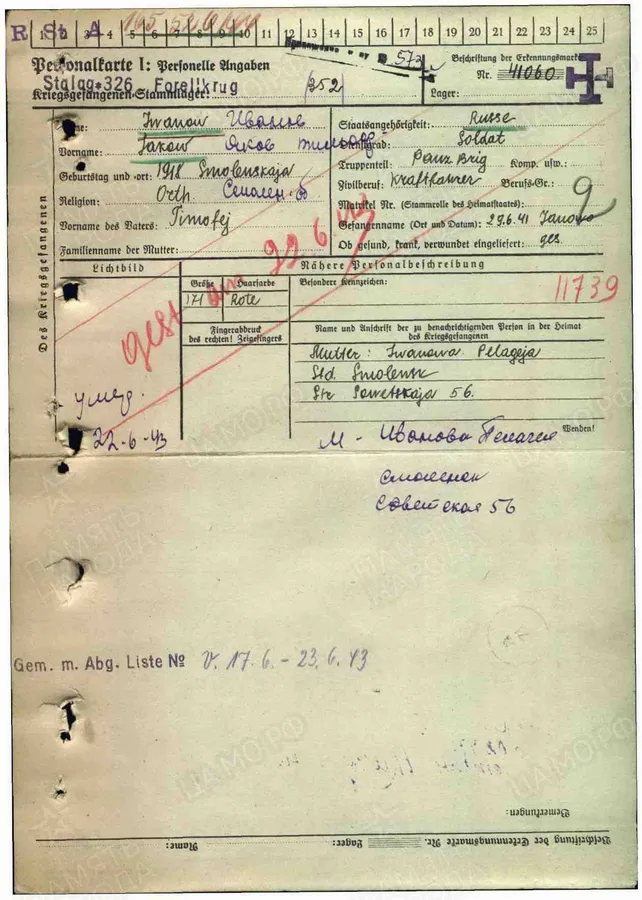 R St A
1 2 3 4 5 6 7 8 9 10 11 12 13 14 15 16 17 18 19 20 21 22 23 24 25
Personalkarte I: Personelle Angaben
Stalag 326 Forellkrug (352)
Kriegsgefangenen-Stammlager:
Beschriftung der Erkennungsmarke
Nr. 41060
Lager:
Des Kriegsgefangenen
Name: Iwanow Иванов
Vorname: Jakow Яков
Geburtstag und -ort: 1918 Smolenskaja
Religion: Orth Смолен. об
Vorname des Vaters: Timofej
Familienname der Mutter:
Staatsangehörigkeit: Russe
Dienstgrad: Soldat
Truppenteil: Panz Brig Komp. usw.:
Zivilberuf: Kraftfahrer Berufs-Gr.: 9
Matrikel Nr. (Stammrolle des Heimatstaates):
Gefangennahme (Ort und Datum): 29.6.41 Janowo
Ob gesund, krank, verwundet eingeliefert: ges.
gest am 22.6.43
Lichtbild
Nähere Personalbeschreibung
Größe Haarfarbe
171 Rote
Besondere Kennzeichen:
11739
Fingerabdruck
des rechten! Zeigefingers
Name und Anschrift der zu benachrichtigenden Person in der Heimat
des Kriegsgefangenen
Mutter: Iwanowa Pelageja
Std Smolensk
Str Sowetskaja 56.
Wenden!
умер.
22-6-43
М - Иванова Пелагея
Смоленск
Советская 56
Gem. m. Abg. Liste № v. 17.6. - 23.6.43
Bemerkungen:
Beschriftung der Erkennungsmarke Nr. Lager: Name:
ПАМЯТЬ НАРОДА
ЦАМО РФ